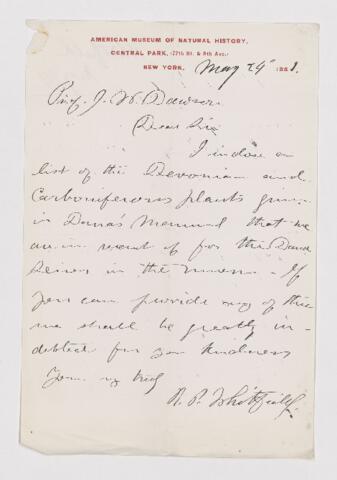 AMERICAN MUSEUM OF NATURAL HISTORY,
CENTRAL PARK, (77th St. & 8th Ave.)
NEW YORK, May 24" 1881.
Prof. J. W. Dawson
Dear Sir
I inclose a
list of the Devonian and
Carboniferous plants given
in Dana's Manual that we
are in want of for the Dana
Series in the Museum. If
you can provide any of them
we shall be greatly in-
debted for your kindness
Yours very truly
R. P. Whitfield.